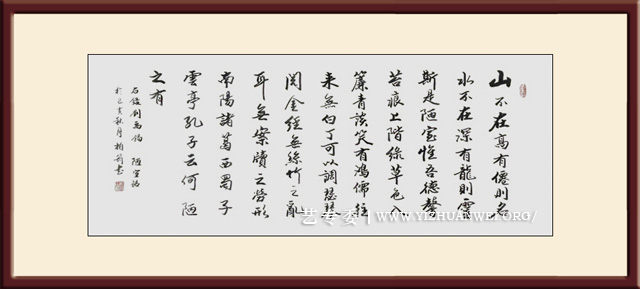 山不在高有僊則名
水不在深有龍則靈
斯是陋室惟吾德馨
苔痕上階綠草色入
簾青談笑有鴻儒往
来無白丁可以調琴
閱金經無絲竹之亂
耳無案牘之勞形
南陽諸葛西蜀子
雲亭孔子云何陋
之有
右錄劉禹錫 陋室銘
於己亥秋月 書
艺专委 | WWW.YIZHUANWEI.ORG/